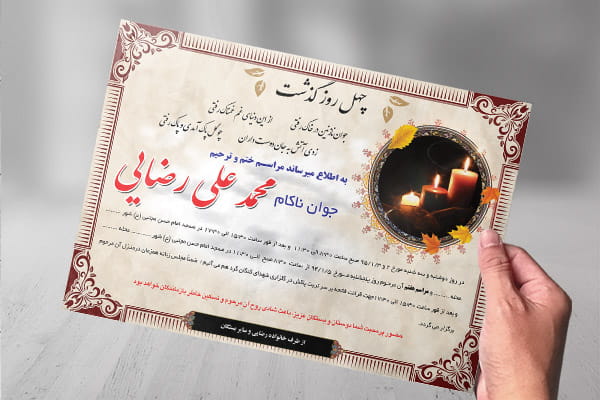 چهل روز گذشت
جوان نازنین در خاک رفتی
از این دنیای غم غمناک رفتی
زدی آتش به جان دوستداران
چو گل پاک آمدی و پاک رفتی
به اطلاع میرساند مراسم ختم و ترحیم
جوان ناکام
محمد علی رضایی
در روز دوشنبه و سه شنبه مورخ ۲ و ۹۵/۱/۳ صبح ساعت ۸:۳۰ الی ۱۱:۳۰ و بعد از ظهر ساعت ۱۵:۳۰ الی ۱۷:۳۰ در مسجد امام حسن مجتبی (ع) شهر
محله و مراسم هفتم آن مرحوم روز پنجشنبه مورخ ۹۴/۱/۵ از ساعت ۸:۳۰ صبح الی ۱۱:۳۰ در مسجد امام حسن مجتبی (ع) شهر محله
و بعد از ظهر ساعت ۱۵:۳۰ الی ۱۷:۳۰ جهت قرائت فاتحه بر سر تربت پاکش در گلزاری شهدای گتکان گرد هم می آئیم. ضمنا مجلس زنانه همزمان در منزل آن مرحوم
برگزار می گردد.
حضور پرمحبت شما دوستان و بستگان عزیز، باعث شادی روح آن مرحوم و تسکین خاطر بازماندگان خواهد بود
از طرف خانواده رضایی و سایر بستگان